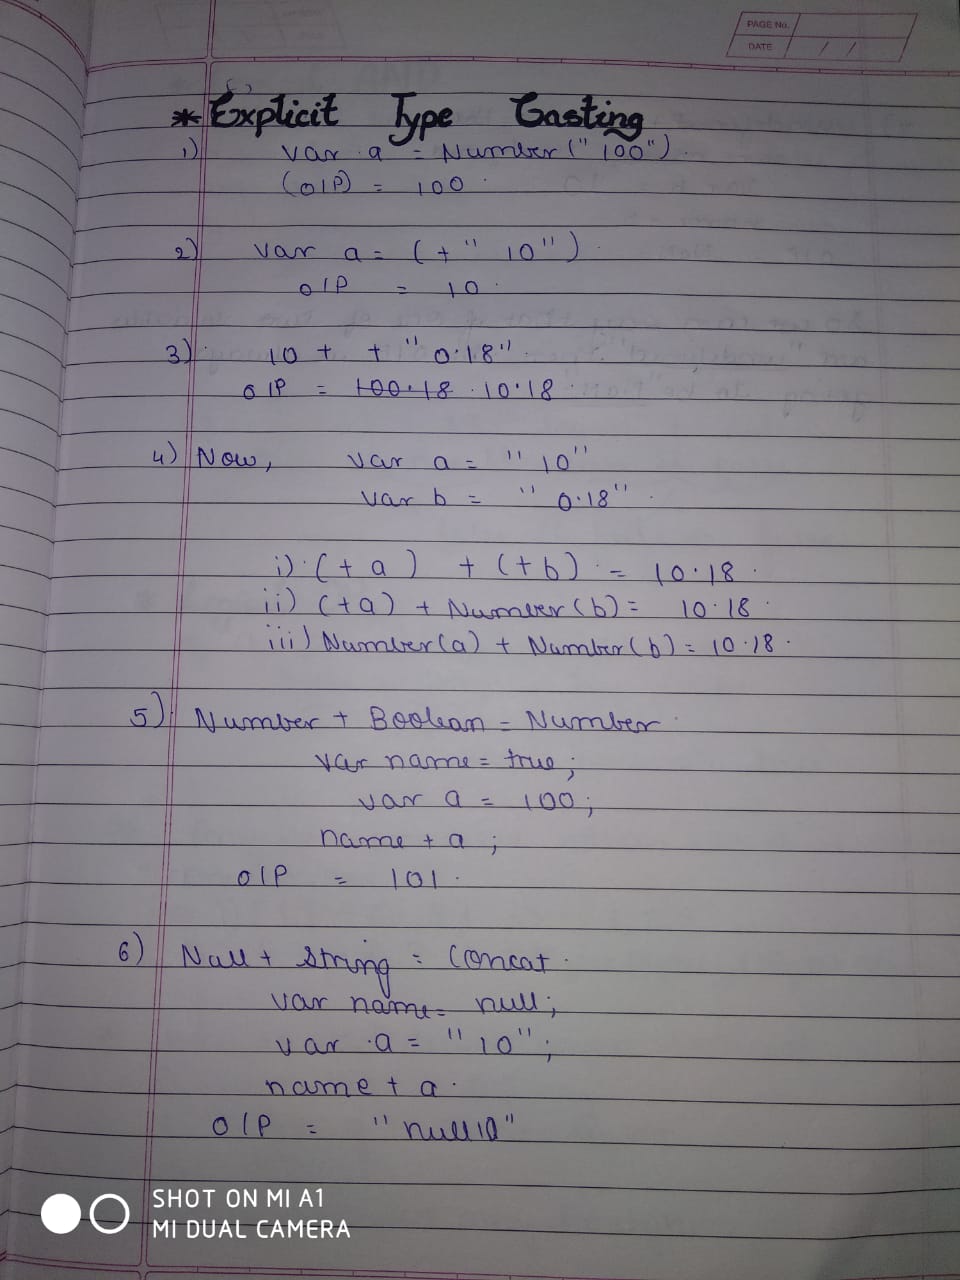 PAGE No.
DATE / /
* Explicit Type Casting
1) var a = Number("100").
(O/P) = 100.
2) var a = (+"10").
O/P = 10.
3) 10 + + "0.18".
O/P = 100.18 . 10.18.
4) Now, var a = "10"
var b = "0.18".
i) (+a) + (+b) = 10.18.
ii) (+a) + Number(b) = 10.18.
iii) Number(a) + Number(b) = 10.18.
5) Number + Boolean = Number.
var name = true;
var a = 100;
name + a;
O/P = 101.
6) Null + String = Concat.
var name = null;
var a = "10";
name + a.
O/P = "null10"
SHOT ON MI A1
MI DUAL CAMERA